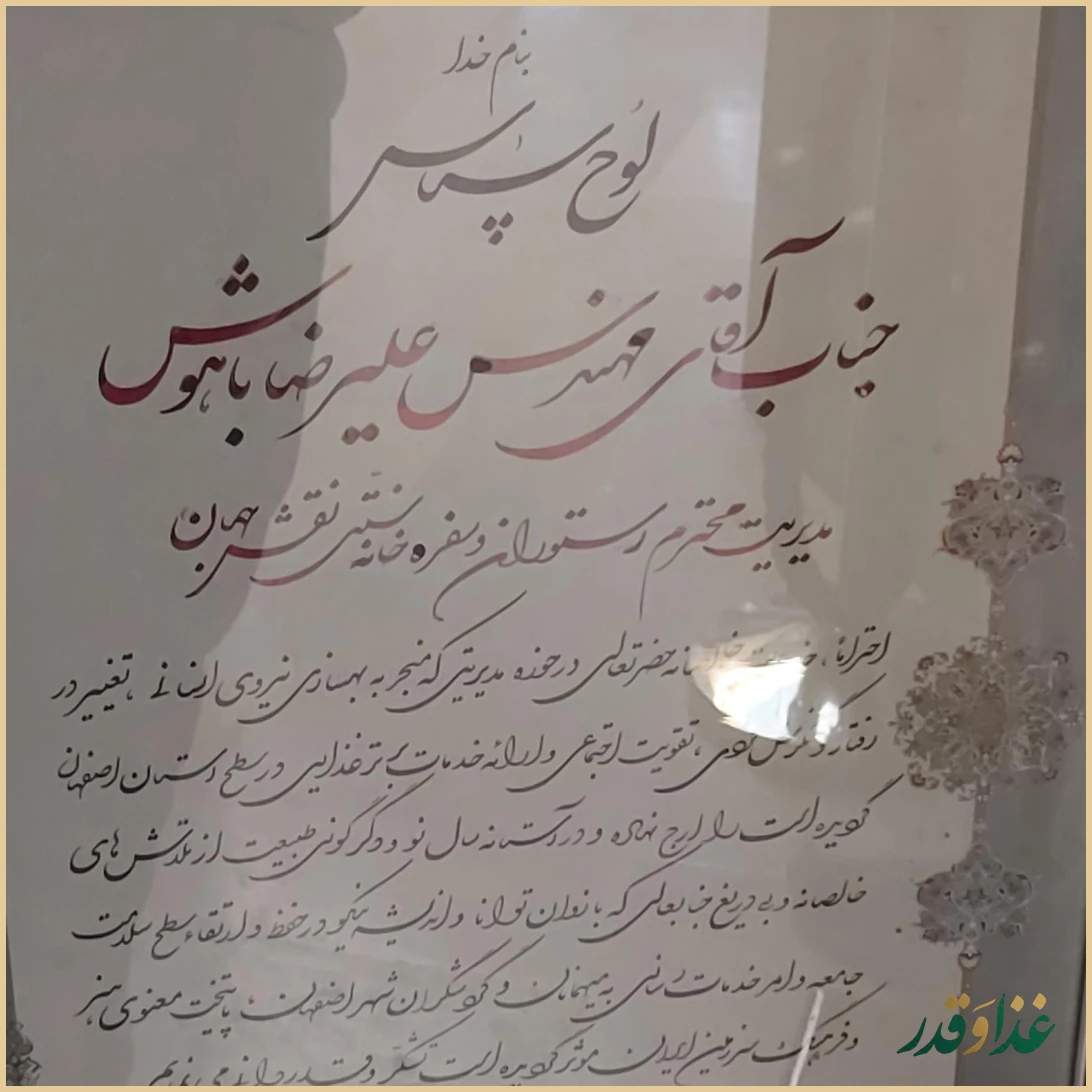 بنام خدا
لوح سپاس
جناب آقای مهندس علیرضا باهوش
مدیریت محترم رستوران و سفره خانه سنتی نقش جهان
احتراماً، حضرتعالی در حوزه مدیریتی که منجر به بهسازی نیروی انسانی، تغییر در
رفتار و نگرش گردی، تقویت اجتماعی و ارائه خدمات برتر غذایی در سطح استان اصفهان
گردیده است را ارج نهاده و در آستانه سال نو و دگرگونی طبیعت از تلاش های
خالصانه و بی دریغ جنابعالی که با توان توانا و اندیشه نیکو در حفظ و ارتقاء سطح سلامت
جامعه و امر خدمات رسانی به میهمانان و گردشگران شهر اصفهان، پایتخت معنوی هنر
و فرهنگ سرزمین ایران مؤثر گردیده است تشکر و قدردانی می نمایم
غذا و قدر